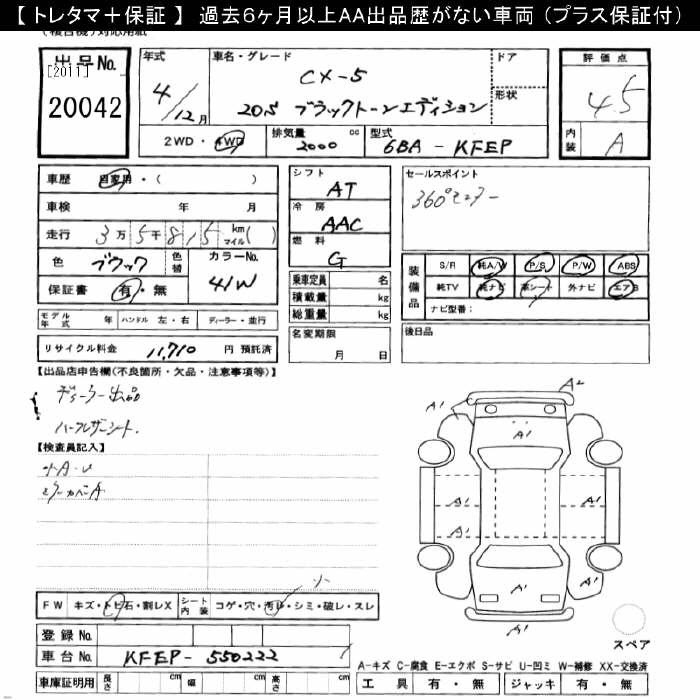 【 トレタマ＋保証 】 過去６ヶ月以上AA出品歴がない車両 (プラス保証付)
出品No.
[2011]
20042
年式
4/12月
車名・グレード
CX-5
20S ブラックトーンエディション
ドア
形状
評価点
4.5
内装
A
2WD・4WD
排気量
2000 cc
型式
6BA - KFEP
車歴 自家用・( )
車検 年 月
走行 3万5千815 km マイル( )
色 ブラック
色替
カラーNo.
41W
保証書 有・無
シフト
AT
冷房
AAC
燃料
G
乗車定員 名
積載量 kg
総重量 kg
セールスポイント
360°モニター
装備品
S/R 純A/W P/S P/W ABS
純TV 純ナビ 革シート 外ナビ エアB
ナビ型番:
モデル年式 年 ハンドル 左・右 ディーラー・並行
リサイクル料金 11,710 円 預託済
名変期限
月 日
後日品
【出品店申告欄(不良箇所・欠品・注意事項等)】
ディーラー出品
ハーフレザーシート.
【検査員記入】
小A・U
ミラーカバーA
A2
A1
A1
A1
A1
A1
A1
A1
A1
小
FW キズ・トビ石・割レX
シート内装 コゲ・穴・汚レ・シミ・破レ・スレ
スペア
登録No.
車台No. KFEP-550222
A-キズ C-腐食 E-エクボ S-サビ U-凹ミ W-補修 XX-交換済
車庫証明用 長さ cm 幅 cm 高さ cm
工具 有・無 ジャッキ 有・無